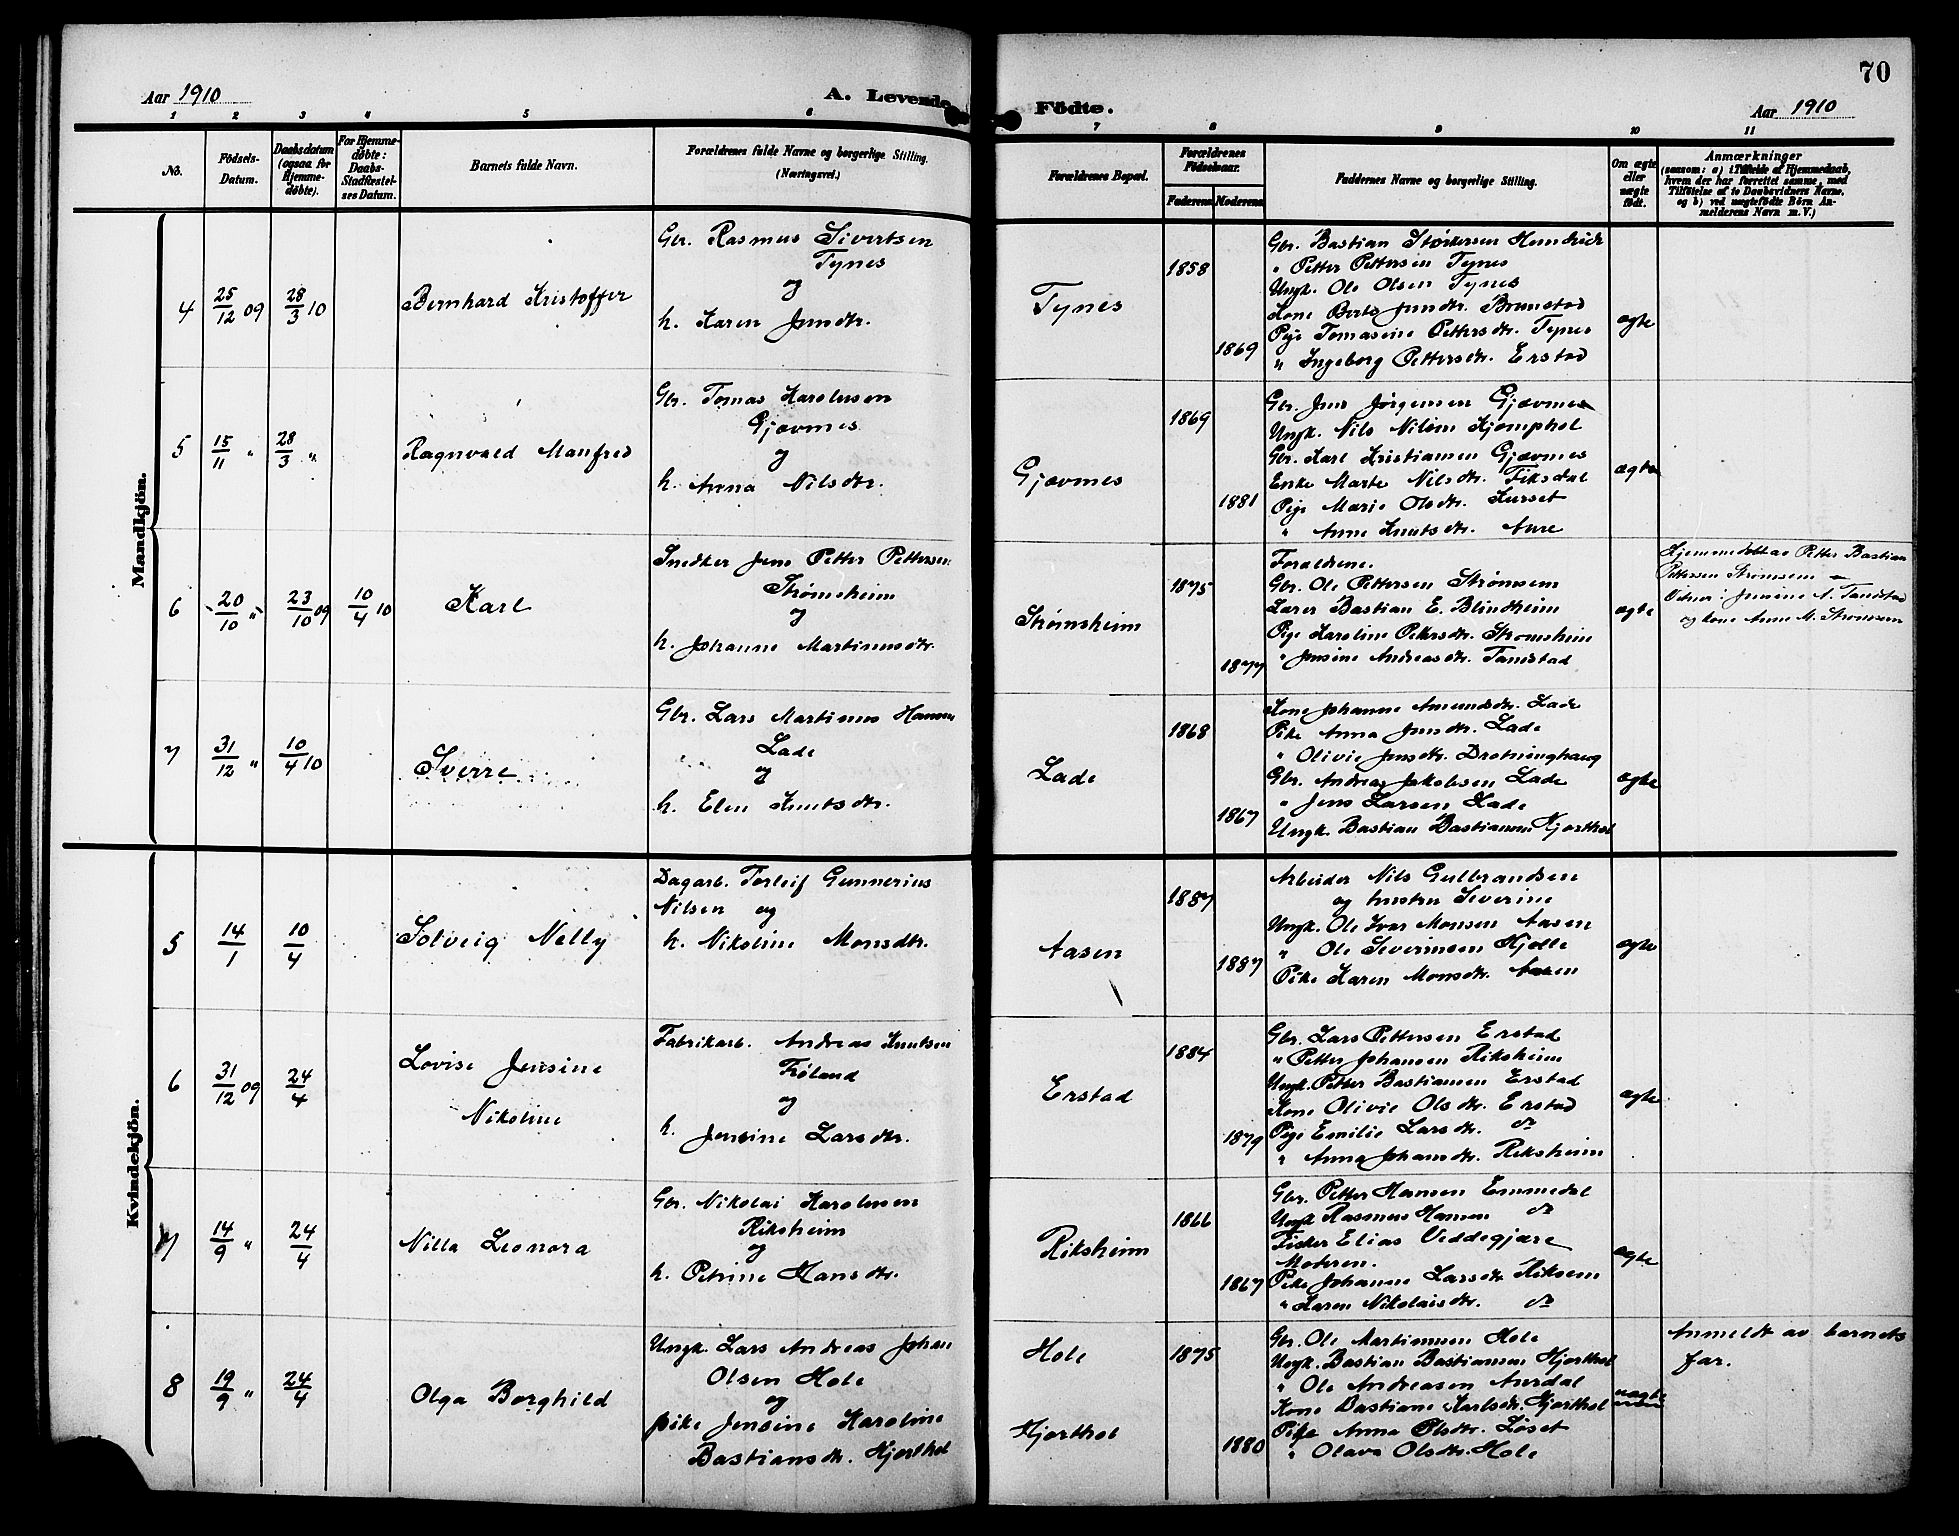 70
Aar 1910
A. Levende
Födte.
Aar 1910
1 2 3 4 5 6 7 8 9 10 11
No.
Födsels-
Datum.
Daabsdatum
(ogsaa for
Hjemme-
döbte).
For Hjemme-
döbte:
Daabs-
Stadfæstel-
ses Datum.
Barnets fulde Navn.
Forældrenes fulde Navne og borgerlige Stilling.
(Næringsvei.)
Forældrenes Bopæl.
Forældrenes
Födselsaar.
Faderens Moderens
Faddernes Navne og borgerlige Stilling.
Om ægte
eller
uægte
födt.
Anmærkninger
(saasom: a) i Tilfælde af Hjemmedaab,
hvem der har forrettet samme, med
Tilföielse af to Daabsvidners Navne,
og b) ved uægtefödte Börn An-
melderens Navn m. V.)
Mandkjön.
4
25/12 09
28/3 10
Bernhard Kristoffer
Gbr. Rasmus Sivertsen
Tynes
og
h. Karen Jensdtr.
Tynes
1858
1869
Gbr. Bastian Størkersen
" Petter Pettersen Tynes
Ungk. Ole Olsen Tynes
Kone Berte Jensdtr. Brunstad
Pige Tomasine Pettersdtr. Tynes
" Ingeborg Pettersdtr. Erstad
ægte
5
15/11 "
28/3 "
Ragnvald Manfred
Gbr. Tomas Karolusen
Gjævenes
og
h. Anna Nilsdtr.
Gjævnes
1869
1881
Gbr. Jens Jørgensen Gjævnes
Ungk. Nils Nilsen
Gbr. Karl Kristiansen Gjævnes
Enke Marte Nilsdtr. Fiksdal
Pige Marie Olsdtr. Kurset
" Anne Knutsdtr. Aure
ægte
6
20/10 "
23/10 09
10/4 10
Karl
Snedker Jens Petter Pettersen
Strømsheim
og
h. Johanne Martinusdtr.
Strømsheim
1875
1877
Forældrene.
Gbr. Ole Pettersen Strømsem
Lærer Bastian E. Blindheim
Pige Karoline Petersdtr. Strømsheim
" Jensine Andreasdtr. Tandstad
ægte
Hjemmedøbt av Petter Bastian
Pettersen Strømsem –
Vidner: Jensine A. Tandstad
og kone Anne M. Strømsem
7
31/12 "
10/4 10
Sverre
Gbr. Lars Martinus Hansen
Lade
og
h. Elen Knutsdtr.
Lade
1868
1867
Kone Johanne Amundsdtr. Lade
Pike Anna Jensdtr. Lade
" Olivie Jensdtr. Drotninghaug
Gbr. Andreas Jakobsen Lade
" Jens Larsen Lade
Ungk. Bastian Bastiansen Hjorthol
ægte
Kvindekjön.
5
14/1
10/4
Solveig Nelly
Dagarb. Torleif Gunnerius
Nilsen og
h. Nikoline Monsdtr.
Aasen
1887
1887
Arbeider Nils Gulbrandsen
og hustru Severine
Ungk. Ole Ivar Monsen Aasen
" Ole Severinsen Hjelle
Pike Karen Monsdtr. Aasen
ægte
6
31/12 09
24/4
Lovise Jensine
Nikoline
Fabrikarb. Andreas Knutsen
Frøland
og
h. Jensine Larsdtr.
Erstad
1884
1879
Gbr. Lars Pettersen Erstad
" Petter Johansen Riksheim
Ungk. Petter Bastiansen Erstad
Kone Olivie Olsdtr. Erstad
Pige Emilie Larsdtr. do
" Anna Johansdtr. Riksheim
ægte
7
14/9 "
24/4
Nilla Leonora
Gbr. Nikolai Karolusen
Riksheim
og
h. Petrine Hansdtr.
Riksheim
1866
1867
Gbr. Petter Hansen Emmedal
Ungk Rasmus Hansen do
Fisker Elias Veddegjære
Moderen.
Pike Johanne Larsdtr Riksem
" Karen Nikolaisdtr. do
ægte
8
19/9 "
24/4
Olga Borghild
Ungk. Lars Andreas Johan
Olsen Hole
og
pike Jensine Karoline
Bastiansdtr. Hjorthol
Hole
Hjorthol
1875
1880
Gbr. Ole Martinussen Hole
Ungk. Bastian Bastiansen Hjorthol
" Ole Andreasen Aurdal
Kone Bastiane Karlsdtr. Hjorthol
Pige Anna Olsdtr. Løset
" Olava Olsdtr. Hole
uægte
Anmeldt av barnets
far.